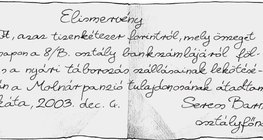 Elismervény
Ft, azaz tizenkétezer forintról, mely összeget
napon a 8/B. osztály bankszámlájáról föl-
a nyári táborozás szállásainak lekötésé-
n a Molnár panzió tulajdonosának átadtam
káta, 2003. dec. 4.
Seres Bar
osztályfőn